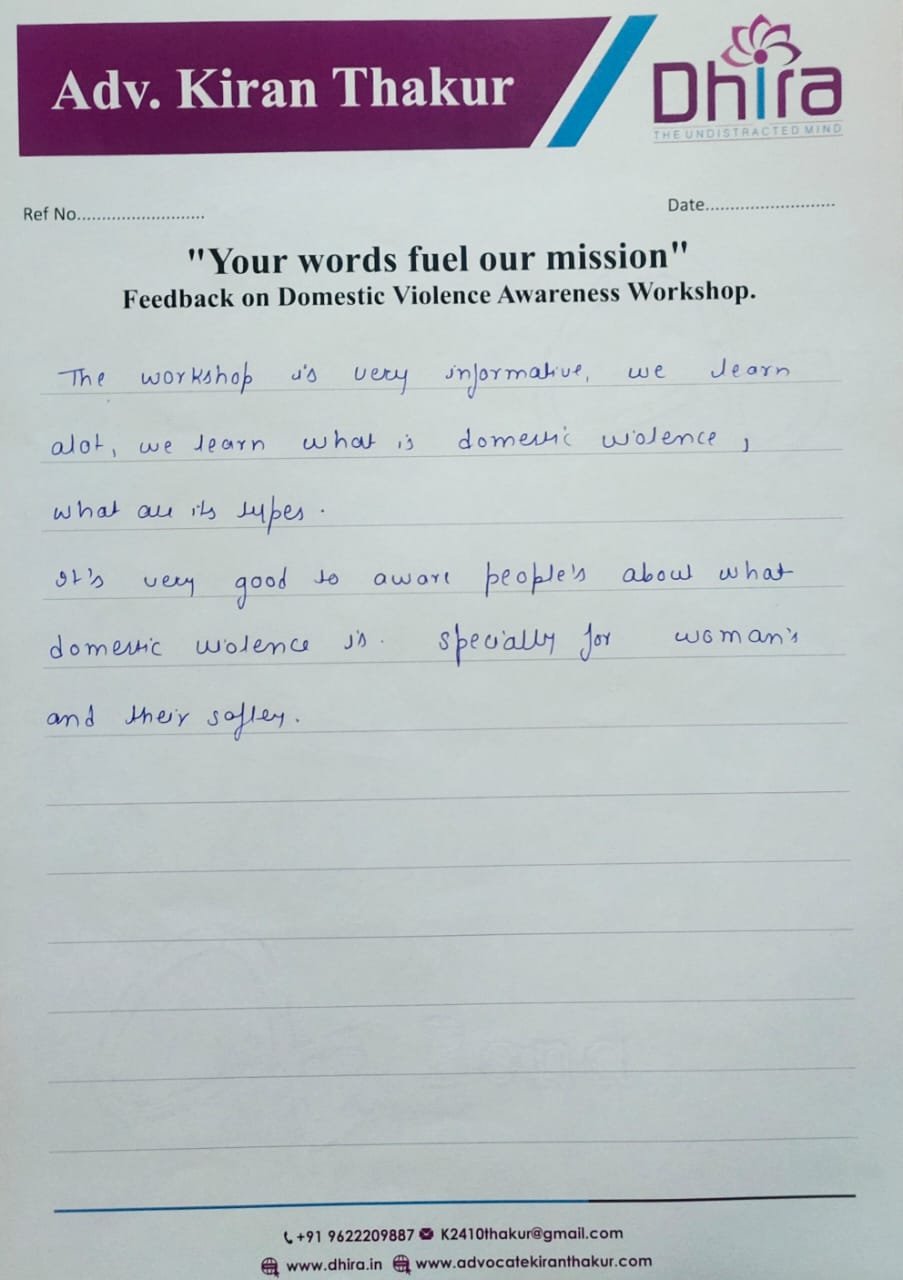 Adv. Kiran Thakur
Dhira
THE UNDISTRACTED MIND
Ref No..........................
Date..........................
"Your words fuel our mission"
Feedback on Domestic Violence Awareness Workshop.
The workshop is very informative, we learn
alot, we learn what is domestic violence,
what are its types.
It's very good to aware people's about what
domestic violence is. specially for woman's
and their saftey.
+91 9622209887 K2410thakur@gmail.com
www.dhira.in www.advocatekiranthakur.com